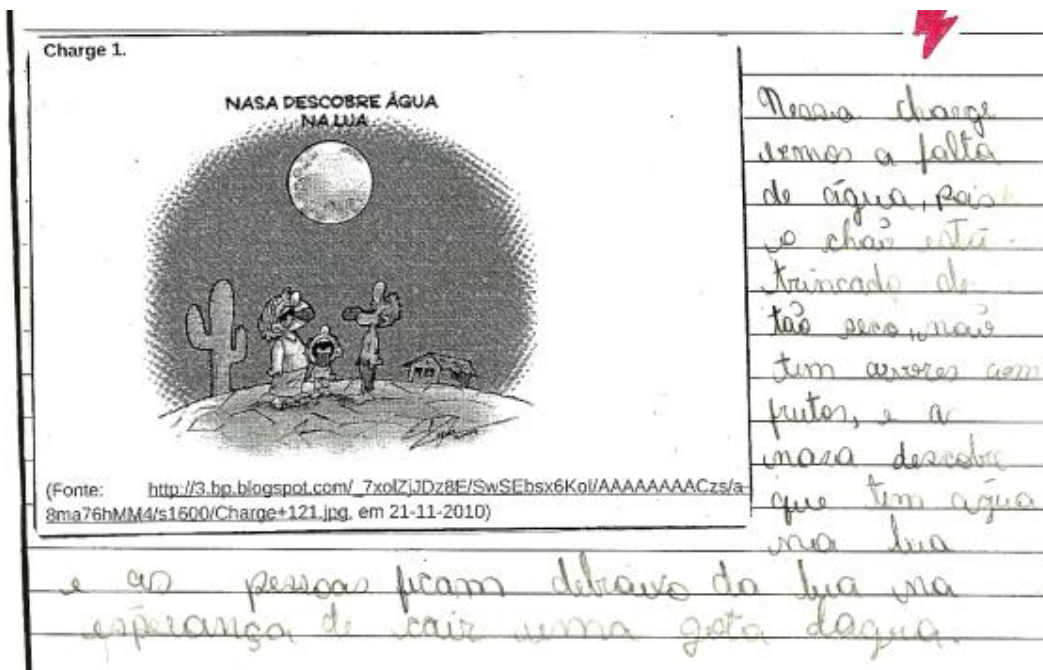 Charge 1.
NASA DESCOBRE ÁGUA
NA LUA
(Fonte: http://3.bp.blogspot.com/_7xolZjJDz8E/SwSEbsx6KoI/AAAAAAAACzs/a-
8ma76hMM4/s1600/Charge+121.jpg, em 21-11-2010)
Nessa charge
vemos a falta
de água, pois
o chaõ está
trincado de
taõ seco, naõ
tem arvores com
frutos, e a
nasa descobre
que tem agua
na lua
e as pessoas ficam debraixo da lua na
esperança de cair uma gota dagua.